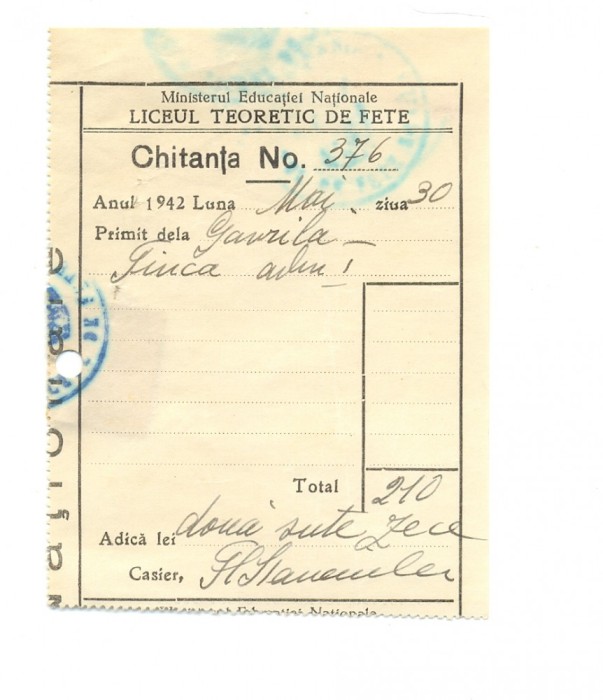 Ministerul Educației Naționale
LICEUL TEORETIC DE FETE
Chitanța No. 376
Anul 1942 Luna Mai ziua 30
Primit dela Gavrila
Tinca
Total 210
Adică lei două sute zece
Casier,